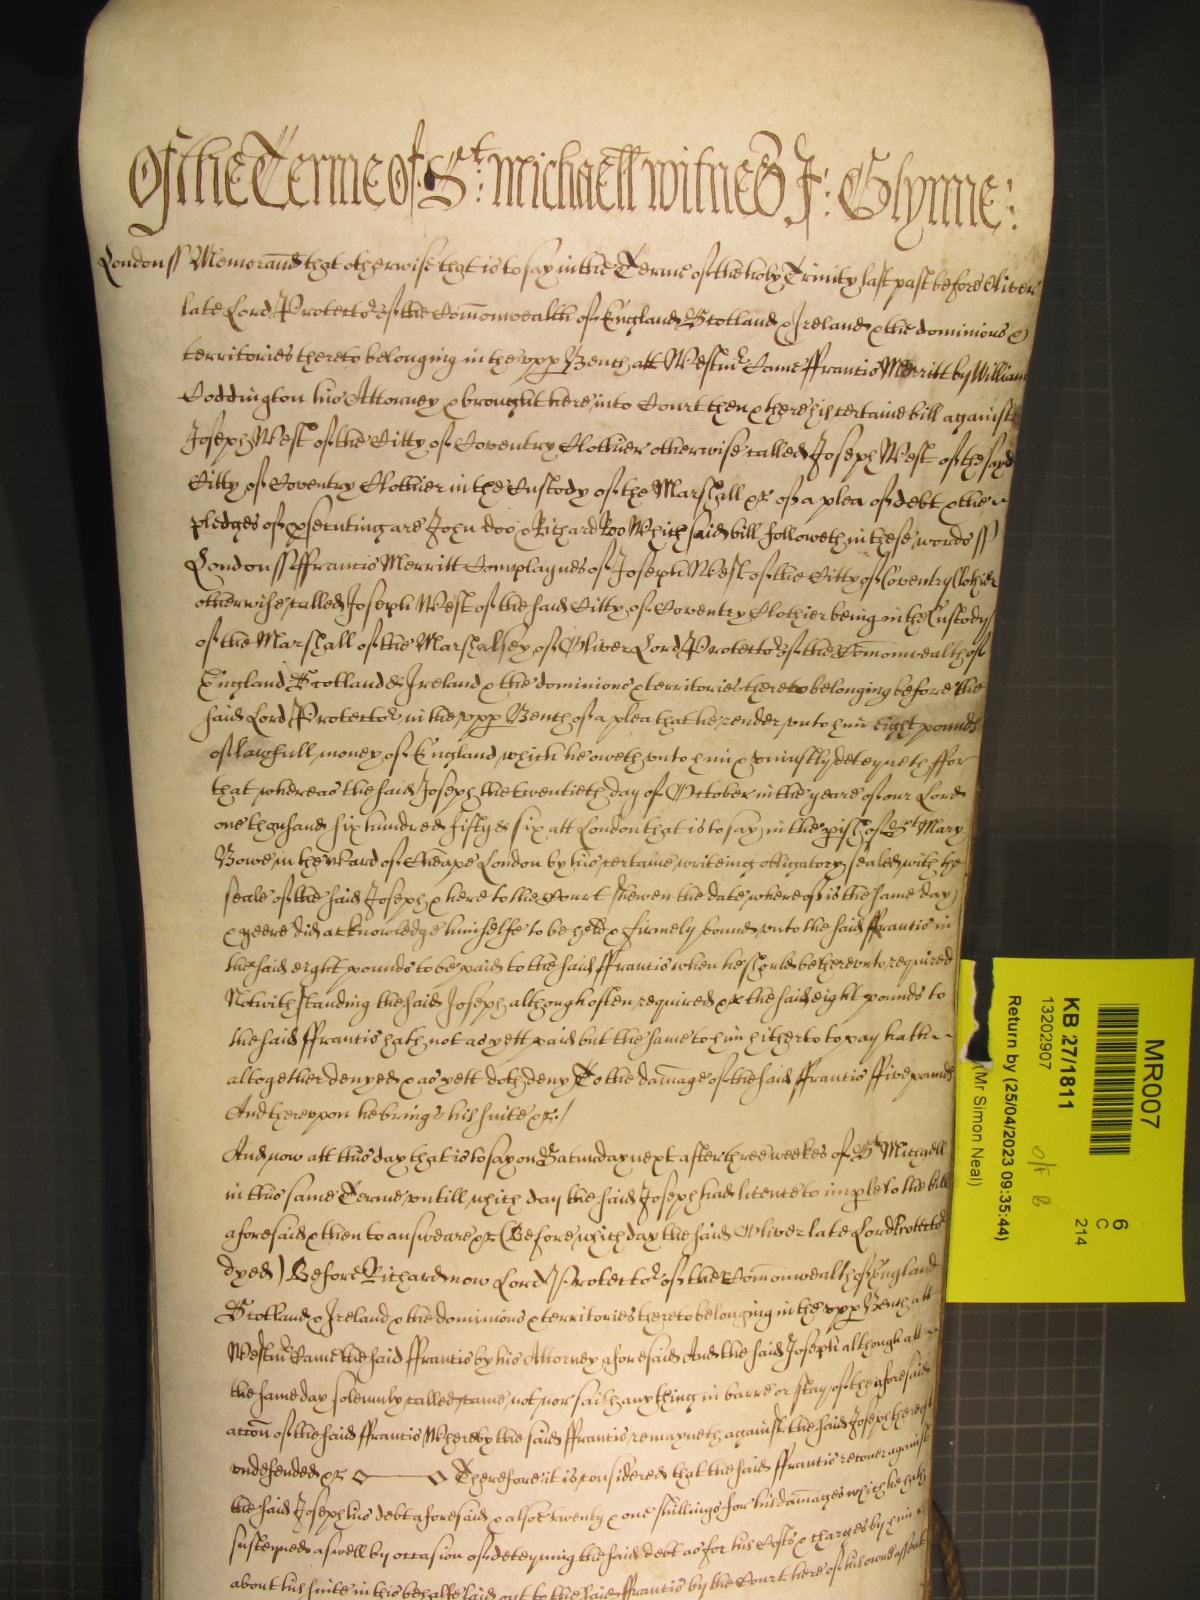 Of the Terme of St: Michaell witnes J: Glynne:
London ss Memorand that otherwise that is to say in the Terme of the holy Trinity last past before Oliver
late Lord Protector of the Comonwealth of England Scotland & Ireland & the dominions &
territories thereto belonging in the upp Bench att Westmr Came ffrancis Merritt by William
Coddington his Attorney & brought here into Court then & there his certaine bill against
Joseph West of the Citty of Coventry Clothier otherwise called Joseph West of the sayd
Citty of Coventry Clothier in the Custody of the Marshall &c of a plea of debt & the
pledges of psecuting are John doo & Richard Roo Which said bill followeth in these words ss
London ss ffrancis Merritt Complaynes of Joseph West of the Citty of Coventry Clothier
otherwise called Joseph West of the said Citty of Coventry Clothier being in the Custody
of the Marshall of the Marshalsey of Oliver Lord Protector of the Comonwealth of
England Scotland & Ireland & the dominions & territories thereto belonging before the
said Lord Protector in the upp Bench of a plea that he render unto him eight pounds
of lawfull money of England which he oweth unto him & uniustly deteyneth ffor
that whereas the said Joseph the twentieth day of October in the yeare of our Lord
one thousand six hundred fifty & six att London that is to say in the pish of St Mary
Bowe in the ward of Cheape London by his certaine writeing obligatory sealed with the
seale of the said Joseph & here to the Court shewen the date whereof is the same day
& yeere did acknowledge himselfe to be held & firmely bound unto the said ffrancis in
the said eight pounds to be paid to the said ffrancis when he should be thereunto required
Notwithstanding the said Joseph although often required &c the said eight pounds to
the said ffrancis hath not as yett paid but the same to him hitherto to pay hath
altogether denyed & as yett doth deny To the damage of the said ffrancis ffive pounds
And thereupon he brings his suite &c /
And now att this day that is to say on Saturday next after three weekes of St Michaell
in this same Terme untill which day the said Joseph had licence to imple to the bill
aforesaid & then to answeare &c (Before which day the said Oliver late Lord Protector
dyed) Before Richard now Lord Protector of the Comonwealth of England
Scotland & Ireland & the dominions & territories thereto belonging in the upp Bench att
Westmr Came the said ffrancis by his Attorney aforesaid And the said Joseph although att
the same day solemnly called came not nor saith any thing in barre or stay of the aforesaid
accon of the said ffrancis Whereby the said ffrancis remayneth against the said Joseph therein
undefended &c Therefore it is considered that the said ffrancis recover against
the said Joseph his debt aforesaid & alsoe twenty & one shillings for his damages which he hath
susteyned aswell by occasion of deteyning the said debt as for his Costs & charges by him
about his suite in this behalfe laid out to the said ffrancis by the Court here of his owne assent
MR007
6
C
214
KB 27/1811
13202907
o/f B
Return by (25/04/2023 09:35:44)
(Mr Simon Neal)